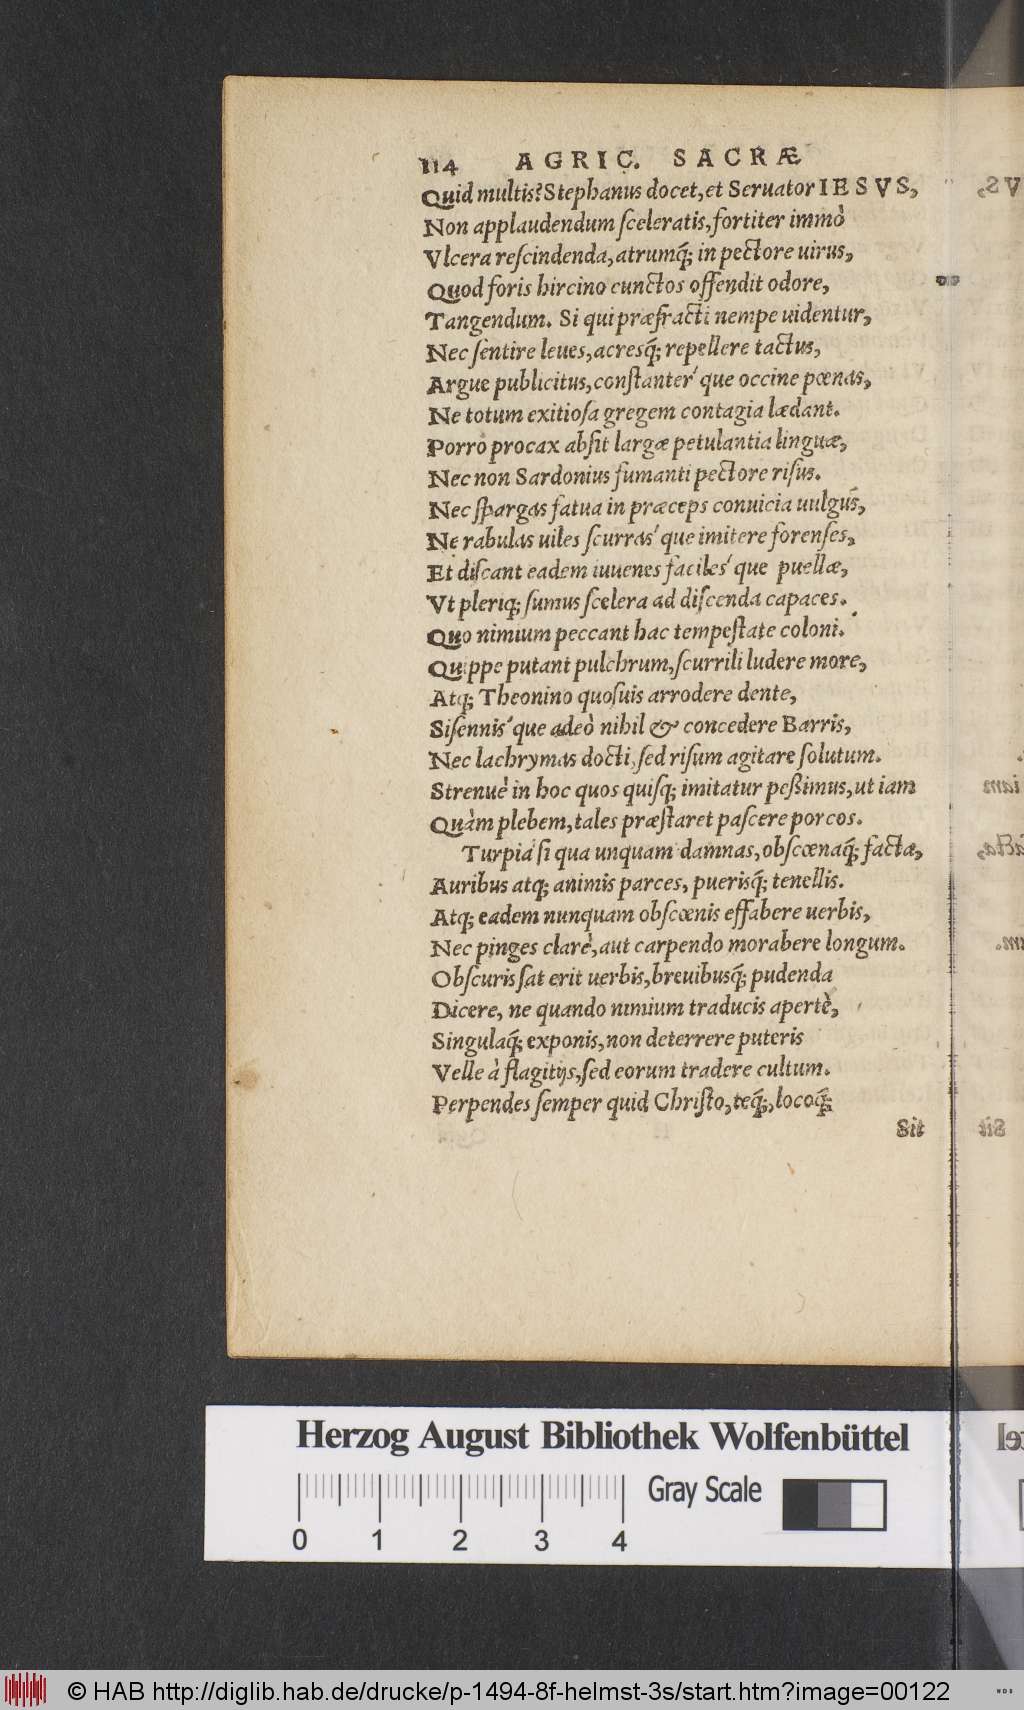 114 AGRIC. SACRÆ
Quid multis? Stephanus docet, et Seruator IESVS,
Non applaudendum ſceleratis, fortiter immò
Vlcera reſcindenda, atrumq́; in pectore uirus,
Quod foris hircino cunctos offendit odore,
Tangendum. Si qui præfracti nempe uidentur,
Nec ſentire leues, acresq́; repellere tactus,
Argue publicitus, conſtanter´que occine pœnas,
Ne totum exitioſa gregem contagia lædant.
Porrò procax abſit largæ petulantia linguæ,
Nec non Sardonius fumanti pectore riſus.
Nec ſpargas fatua in præceps conuicia uulgus,
Ne rabulas uiles ſcurras´que imitere forenſes,
Et diſcant eadem iuuenes faciles´que puellæ,
Vt pleriq; ſumus ſcelera ad diſcenda capaces.
Quo nimium peccant hac tempeſtate coloni.
Quippe putant pulchrum, ſcurrili ludere more,
Atq; Theonino quoſuis arrodere dente,
Siſennis´que adeò nihil & concedere Barris,
Nec lachrymas docti, ſed riſum agitare ſolutum.
Strenuè in hoc quos quiſq; imitatur peßimus, ut iam
Quàm plebem, tales præſtaret paſcere porcos.
Turpia ſi qua unquam damnas, obſcœnaq́; facta,
Auribus atq; animis parces, puerisq́; tenellis.
Atq; eadem nunquam obſcœnis effabere uerbis,
Nec pinges clarè, aut carpendo morabere longum.
Obſcuris ſat erit uerbis, breuibusq́; pudenda
Dicere, ne quando nimium traducis apertè,
Singulaq́; exponis, non deterrere puteris
Velle à flagitijs, ſed eorum tradere cultum.
Perpendes ſemper quid Chriſto, teq́;, locoq́;
Sit
Herzog August Bibliothek Wolfenbüttel
0 1 2 3 4
Gray Scale
© HAB http://diglib.hab.de/drucke/p-1494-8f-helmst-3s/start.htm?image=00122